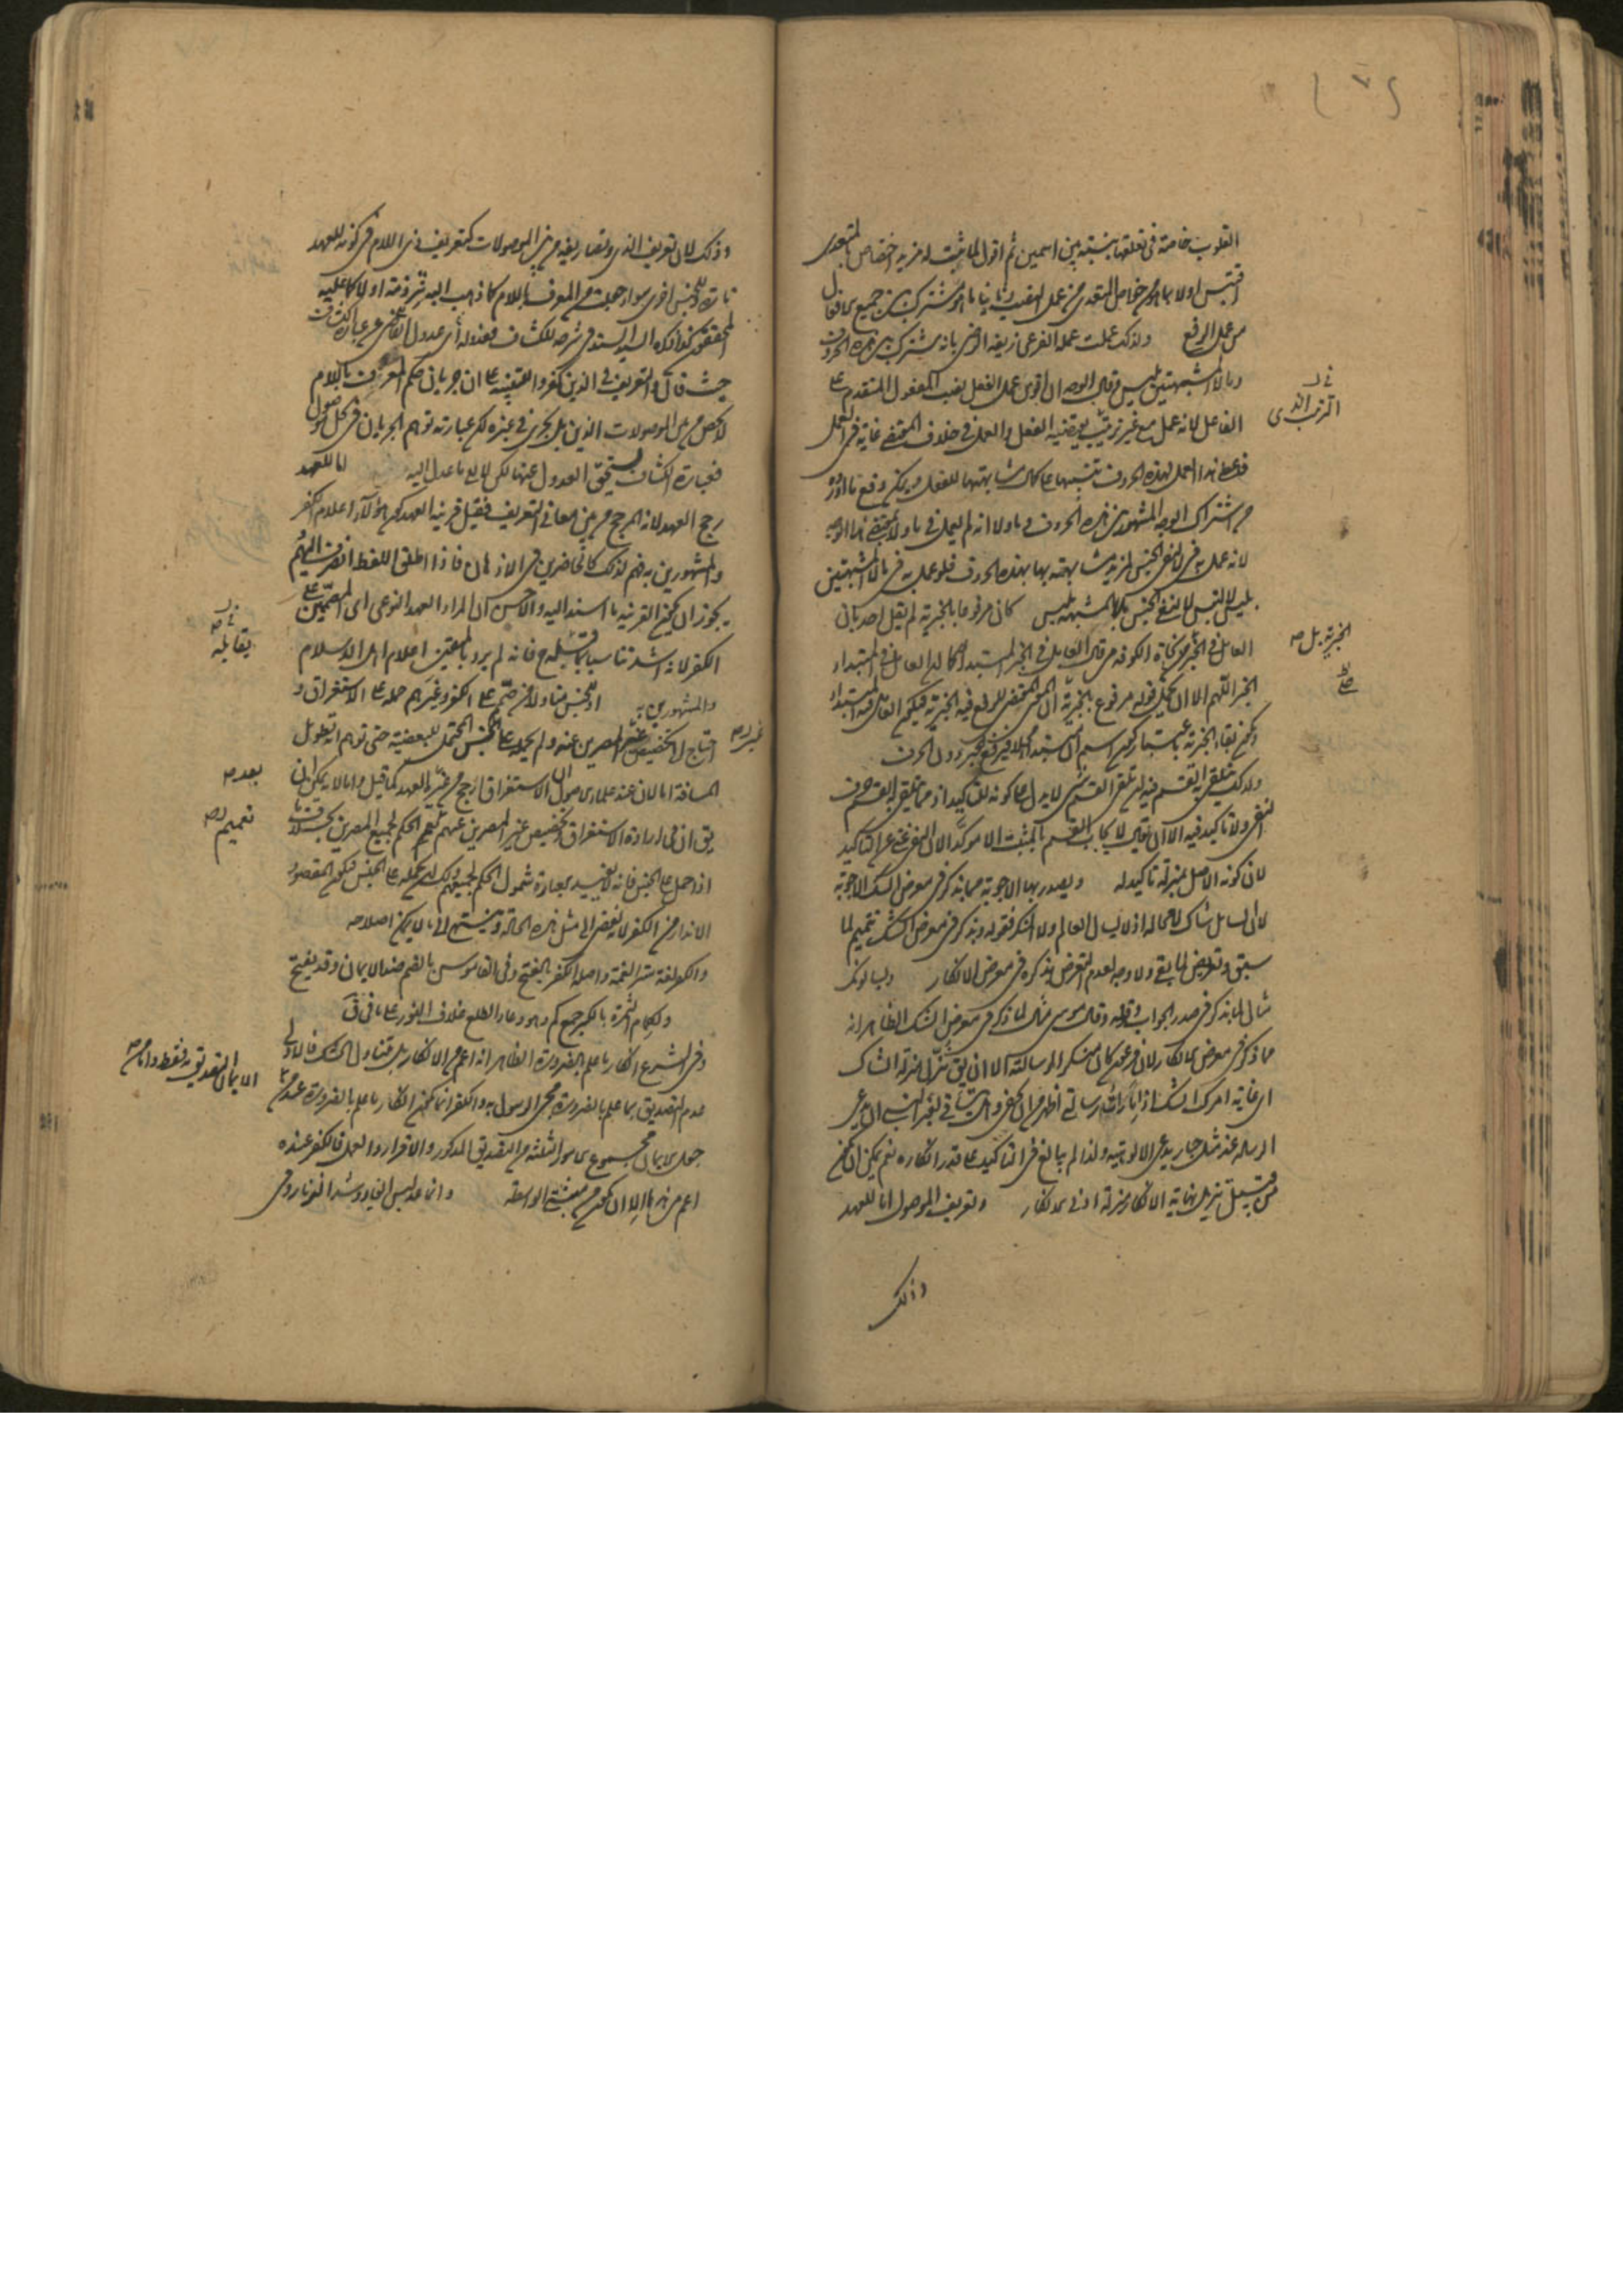 القلوب خاصة فى تعلقها بنسبة بين اسمين ثم اقول لما ثبت له مزيد اختصاص بالمتعدى
اقتبس اولا ما هو من خواص المتعدى من عمل النصب وثانيا ما هو مشترك بين جميع الافعال
من عمل الرفع ولذلك عملت عمله الفرعى زيفه الرضى بانه مشترك بين هذه الحروف
وما ولا المشبهتين بليس وقال الوجه ان اقوى عمل الفعل نصب المفعول المتقدم على
الفاعل لانه عمل مع غير ترتيب يقتضيه الفعل والعمل فى خلاف المقتضى غاية فى العمل
فاعطى هذا العمل لهذه الحروف تنبيها على كمال مشابهتها للفعل
من اشتراك الوجه المشهور بين هذه الحروف وما ولا انه لم يعمل فى ما ولا بمقتضى هذا الوجه
لانه عمل به فى لا لنفى الجنس لمزيد مشابهته بها بهذه الحروف فلو عمل به فى ما ولا المشبهتين
بليس لالتبس لا لنفى الجنس بلا المشبهة بليس كان مرفوعا بالخبرية لم يقل احد بان
العامل فى الخبر من نحاة الكوفة من قال العامل فى الخبر المبتدا كما ان العامل فى المبتدا
الخبر اللهم الا ان يحمل قوله مرفوع بالخبرية ان المعنى المقتضى للرفع فيه الخبرية فيكون العامل فيه المبتدا
ولذلك يتلقى به القسم فيه ان تلقى القسم لا يدل على كونه للتاكيد اذ مما يتلقى به القسم حرف
النفى ولا تاكيد فيه الا ان يقال لا يجاب القسم بالمثبت الا مؤكدا لان النفى غنى عن التاكيد
لان كونه الاصل بمنزلة تاكيد له ويصدر بها الاجوبة مما يذكر فى معرض الشك الاجوبة
لان السائل شاك لا محالة اذ لا يسال العالم ولا المنكر فقوله ويذكر فى معرض الشك تتميم لما
سبق وتعريض لما بقى ولا وجه لعدم التعرض لذكره فى معرض الانكار ويسالونك
مثال لما يذكر فى صدر الجواب وقوله وقال موسى مثال لما ذكر فى معرض الشك الظاهر انه
مما ذكر فى معرض الانكار لان فرعون كان منكر الرسالة الا ان يق تنزل منزلة الشاك
الرسالة عند مثل جبار يدعى الالوهية ولذا لم يبالغ فى التاكيد على قدر انكاره نعم يمكن ان يكون
من قبيل تنزيل نهاية الانكار منزلة ادنى الانكار وتعريف الموصول اما للعهد
وذلك
فى ر
الترتيب الذى
الخبرية بل صه
صح
وذلك لان تعريف الذى وتصاريفه من بين الموصولات كتعريف ذى اللام فى كونه للعهد
تارة وللجنس اخرى سواء جعلت من المعرف باللام كما ذهب اليه شرذمة او لا كما عليه
المحققون كذا ذكره السيد السند فى شرحه للكشاف فعدوله اى عدول القاضى عن عبارة الكشاف
حيث قال والتعريف فى الذين كفروا للتنبيه على ان جريان حكم المعرف باللام
لا يخص من بين الموصولات الذين بل يجرى فى غيره لكن عبارته توهم الجريان فى كل موصول
فعبارة الكشاف يستحق العدول عنها لكن لا الى ما عدل اليه اما للعهد
رجح العهد لانه المرجح من بين معانى التعريف فقيل قرينة العهد كون هؤلاء اعلام الكفر
والمشهورين به فهم لذلك كالحاضرين فى الاذهان فاذا اطلق اللفظ انصرف اليهم
يجوز ان يكون القرينة ما اسند اليه والاحسن ان المراد العهد النوعى اى المصممين على
الكفر لانه اشد تناسبا بما قبله ح فانه لم يرد بالمتقين اعلام اهل الاسلام
والمشهورين به او للجنس متناولا من صمم على الكفر وغيرهم حمله على الاستغراق و
احتاج الى تخصيص غير المصرين عنه ولم يحمله على الجنس المحتمل للبعضية حتى توهم انه تطويل
المسافة اما لان عند علماء الاصول ان الاستغراق ارجح من غير العهد كما قيل واما لانه يمكن ان
يق ان فى ارادة الاستغراق وتخصيص غير المصرين عنهم تعميم الحكم لجميع المصرين بخلاف ما
اذا حمل على الجنس فانه لا يفيد بعبارته شمول الحكم لجميعهم
الانذار من الكفر لانه يفضى الى مثل هذه الحالة وينتهى الى ما لا يمكن اصلاحه
والكفر لغة ستر النعمة واصله الكفر بالفتح وفى القاموس بالضم ضد الايمان وقد يفتح
ولكمام الثمرة بالكسر جمع كم وهو وعاء الطلع غلاف النور على ما فى ق
وفى الشرع انكار ما علم بالضرورة الظاهر انه اعم من الانكار بل يتناول الشك فالاولى
عدم التصديق بما علم بالضرورة مجئ الرسول به والكفر انما يكون انكار ما علم بالضرورة عند من
جعل الايمان مجموع الامور الثلثة من التصديق المذكور والاقرار والعمل فالكفر عنده
اعم من هذا الا ان يكون من مثبتى الواسطة وانما عد لبس الغيار وشد الزنار وفى
غير صه
فى ر صه
يقابله
بعد صه
تعميم صه
الايمان التصديق به فقط واما من صه